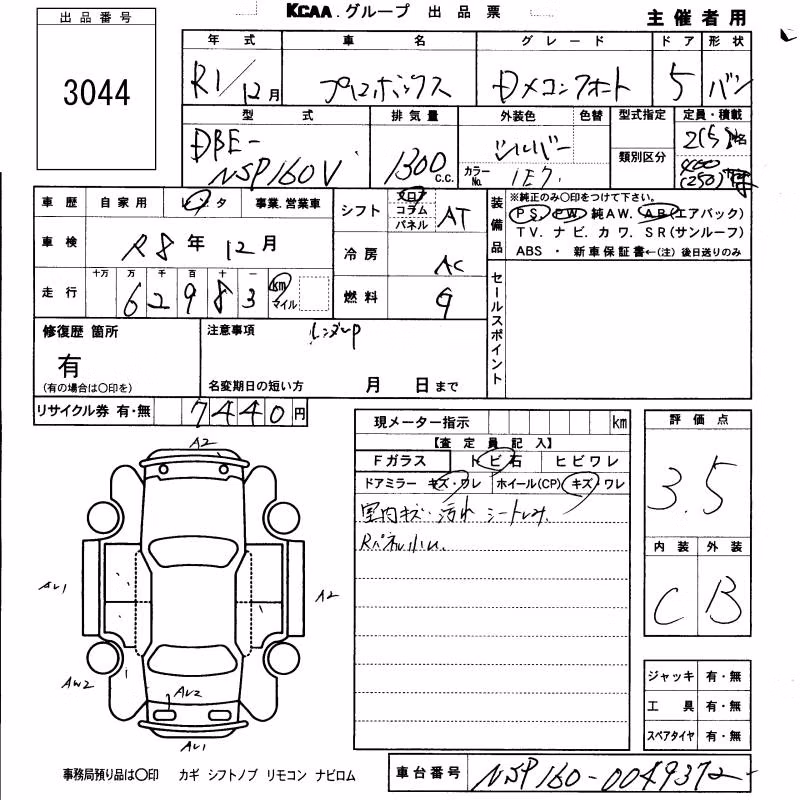 KCAA. グループ 出品票
主催者用
出品番号
3044
年式 車名 グレード ドア 形状
R1/12月 プロボックス DXコンフォート 5 バン
型式 排気量 外装色 色替 型式指定 定員・積載
DBE-
NSP160V 1300 c.c. シルバー
カラーNo. 1E7. 類別区分
2(5)名
400
(250)
車歴 自家用 レンタ 事業.営業車
車検 R8年12月
走行 十万 万 千 百 十 一
62983 km マイル
シフト フロア コラム パネル AT
冷房 AC
燃料 G
装備品
※純正のみ○印をつけて下さい。
PS PW 純AW. AB(エアバック)
TV. ナビ. カワ. SR(サンルーフ)
ABS ・ 新車保証書←(注) 後日送りのみ
セールスポイント
修復歴 箇所
有
(有の場合は○印を)
注意事項 レンタup
名変期日の短い方 月 日まで
リサイクル券 有・無 7440円
現メーター指示 km
【査定員記入】
Fガラス トビ石 ヒビワレ
ドアミラー キズ・ワレ ホイール(CP) キズ・ワレ
室内キズ・汚れ シートしみ.
Rパネル小ム.
評価点
3.5
内装 外装
C B
A2
AU1
A2
AW2
AU2
AU1
ジャッキ 有・無
工具 有・無
スペアタイヤ 有・無
事務局預り品は○印 カギ シフトノブ リモコン ナビロム
車台番号 NSP160-0049372-